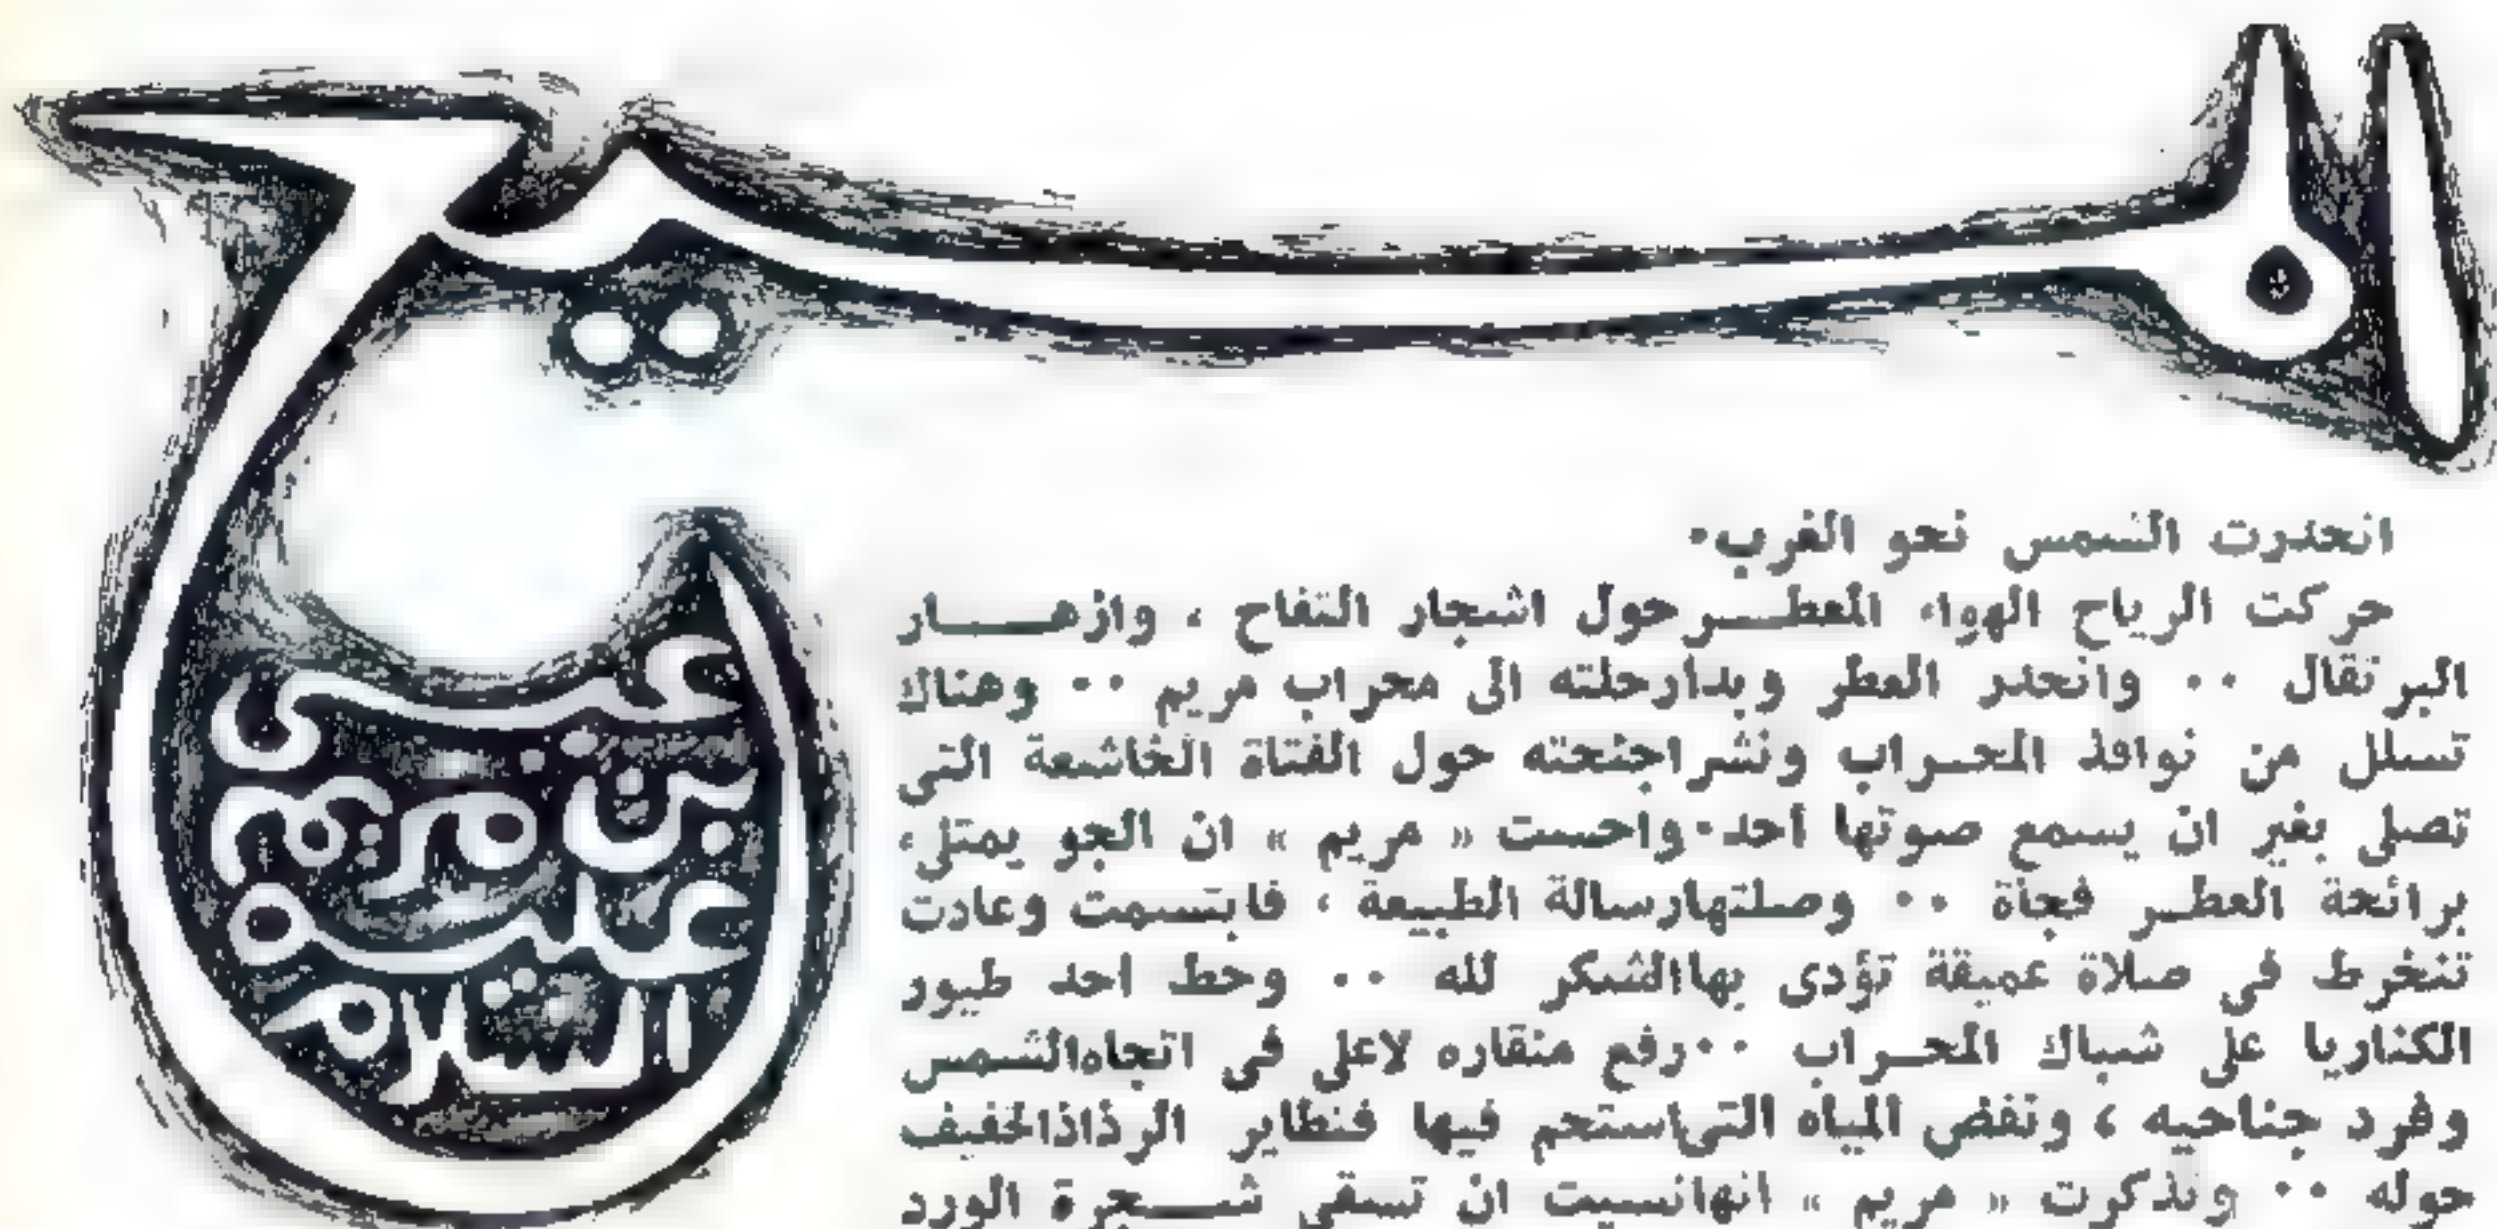 المسيح
عيسى
بن مريم
عليه
السلام
انحدرت الشمس نحو الغرب.
حركت الرياح الهواء المعطـــر حول اشجار التفاح ، وازهـــــار
البرتقال .. وانحدر العطر وبدأ رحلته الى محراب مريم .. وهناك
تسلل من نوافذ المحـراب ونشر اجنحته حول الفتاة الخاشعة التى
تصلى بغير ان يسمع صوتها أحد. واحست « مريم » ان الجو يمتلىء
برائحة العطـر فجأة .. وصلتها رسالة الطبيعة ، فابتسمت وعادت
تنخرط فى صلاة عميقة تؤدى بها الشكر لله .. وحط احد طيور
الكناريا على شباك المحـراب .. رفع منقاره لاعلى فى اتجاه الشمس
وفرد جناحيه ، ونفض المياه التى استحم فيها فتطاير الرذاذ الخفيف
حوله .. وتذكرت « مريم » انها نسيت ان تسقى شــــجرة الورد